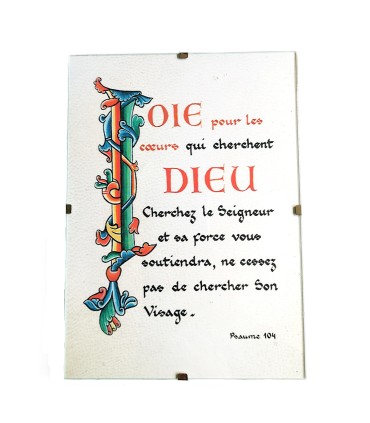 JOIE pour les
cœurs qui cherchent
DIEU
Cherchez le Seigneur
et sa force vous
soutiendra, ne cessez
pas de chercher Son
Visage.
Psaume 104